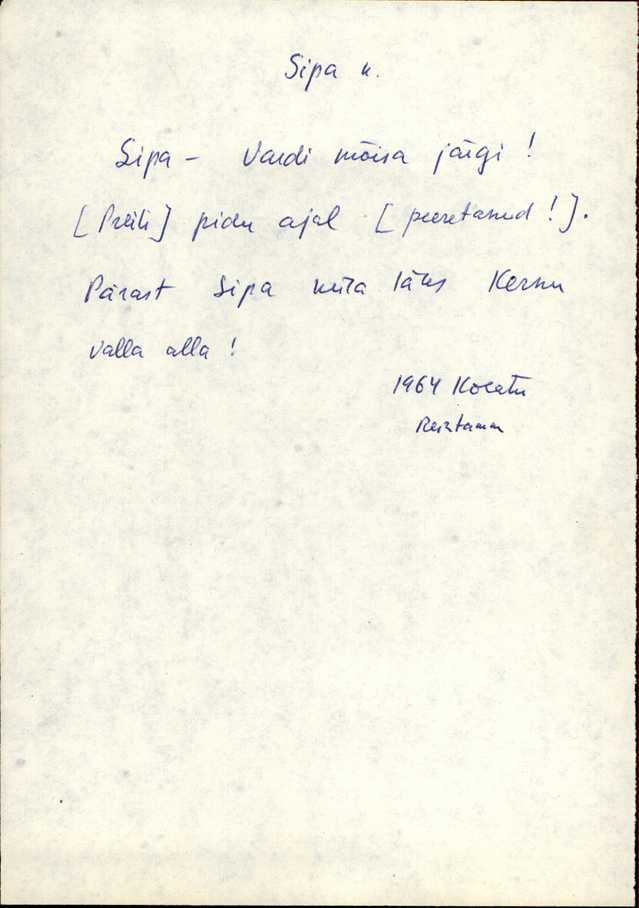 Sipa k.
Sipa – Vardi mõisa järgi!
[Preili] pidu ajal [peeretanud!].
Pärast Sipa küla läks Kernu
valla alla!
1964 Kocatu